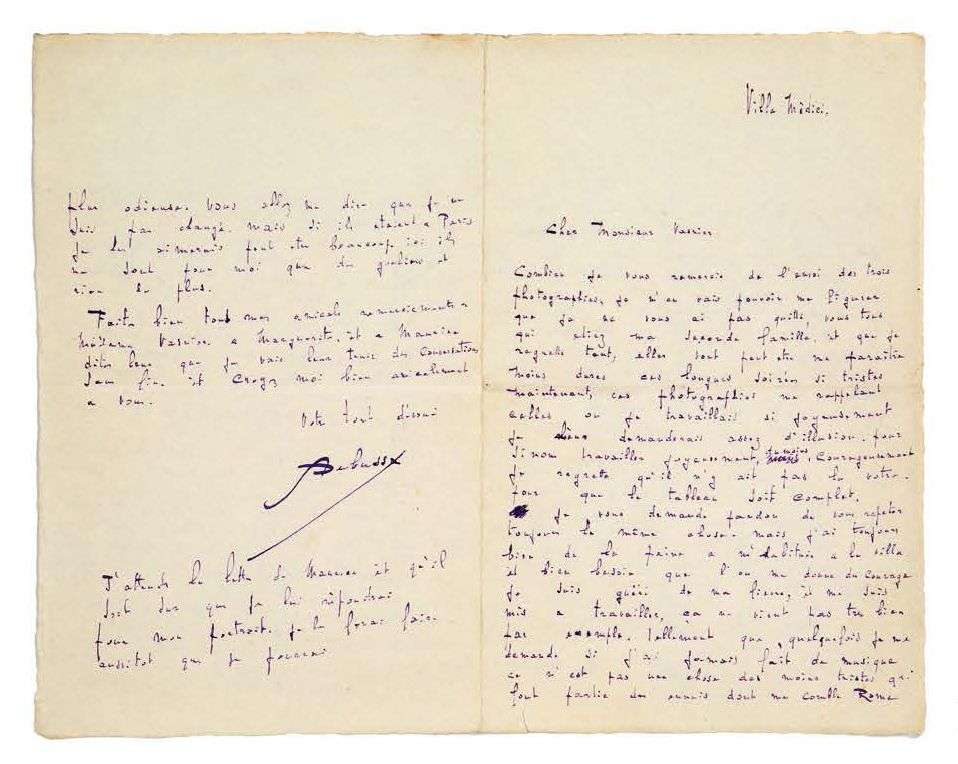 Villa Médici.
Cher Monsieur Vasnier.
Combien je vous remercie de l'envoi des trois
photographies, je m'en vais pouvoir me figurer
que je ne vous ai pas quitté, vous tous
qui étiez ma seconde famille, et que je
regrette tant, elles vont peut être me paraître
moins dures ces longues soirées si tristes
maintenant, ces photographies me rappelant
celles ou je travaillais si joyeusement
Je demanderais assez d'illusion. pour
sinon travailler joyeusement, du moins, Courageusement
Je regrette qu'il n'y ait pas la votre.
pour que le tableau soit complet.
Je vous demande pardon de vous répéter
toujours la même chose. mais j'ai toujours
bien de la peine a m'habituer a la villa
et bien besoin que l'on me donne du courage
Je suis guéri de ma fièvre, et me suis
mis a travailler, ça ne vient pas très bien
par exemple. Tellement que, quelquefois je me
demande si j'ai jamais fait de musique
ce n'est pas une chose des moins tristes qui
font partie des ennuis dont me comble Rome
plus odieuse. Vous allez me dire que je ne
suis pas changé. mais si ils étaient a Paris
Je les aimerais peut etre beaucoup, ici ils
ne sont pour moi que des geoliers et
rien de plus.
Faites bien tous mes amicals remerciements a
Madame Vasnier. a Marguerite, et a Maurice
dites leur que je vais leur tenir des Conversations
sans fin. et Croyez moi bien amicalement
a vous.
Votre tout dévoué
Debussy
J'attends la lettre de Maurice et qu'il
soit sur que je lui répondrai
pour mon portrait. je le ferai faire
aussitot que je pourrai